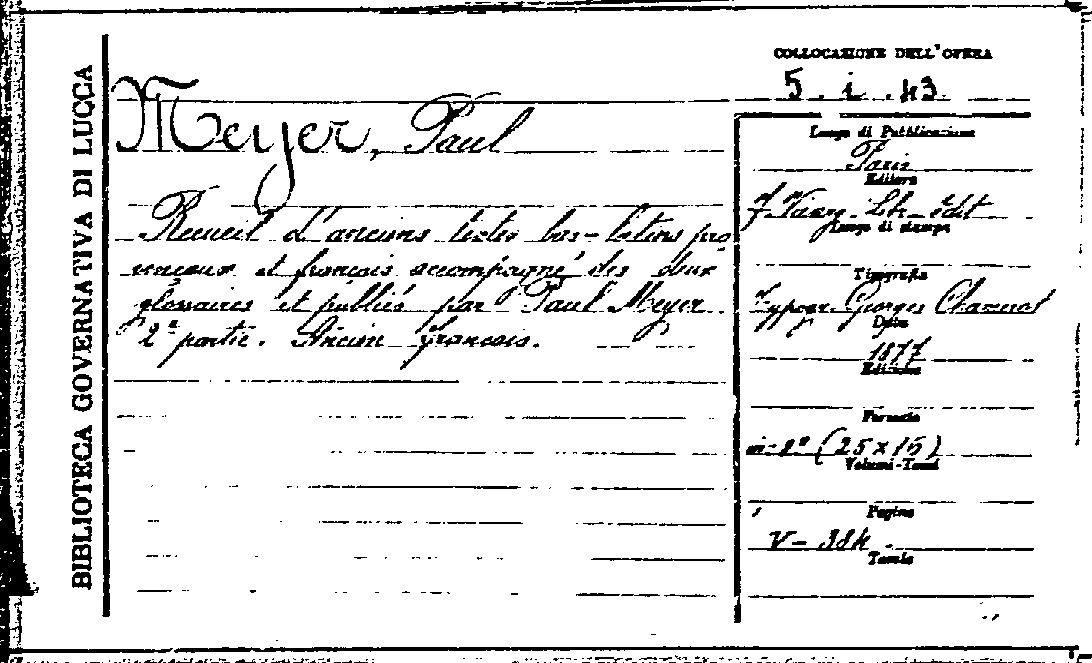 BIBLIOTECA GOVERNATIVA DI LUCCA
Meyer, Paul
Recueil d'anciens textes bas-latins pro
vencaux et francais accompagné des deux
glossaires et publiés par Paul Meyer.
2e partie. Ancien francais.
COLLOCAZIONE DELL'OPERA
5. i. 43
Luogo di Pubblicazione
Paris
Editore
F. Vieweg Lib-édit
Luogo di stampa
Tipografia
Typogr. Georges Chamerot
Data
1877
Edizione
Formato
in-8° (25x15)
Volumi-Tomi
Pagine
V-384.
Tavole